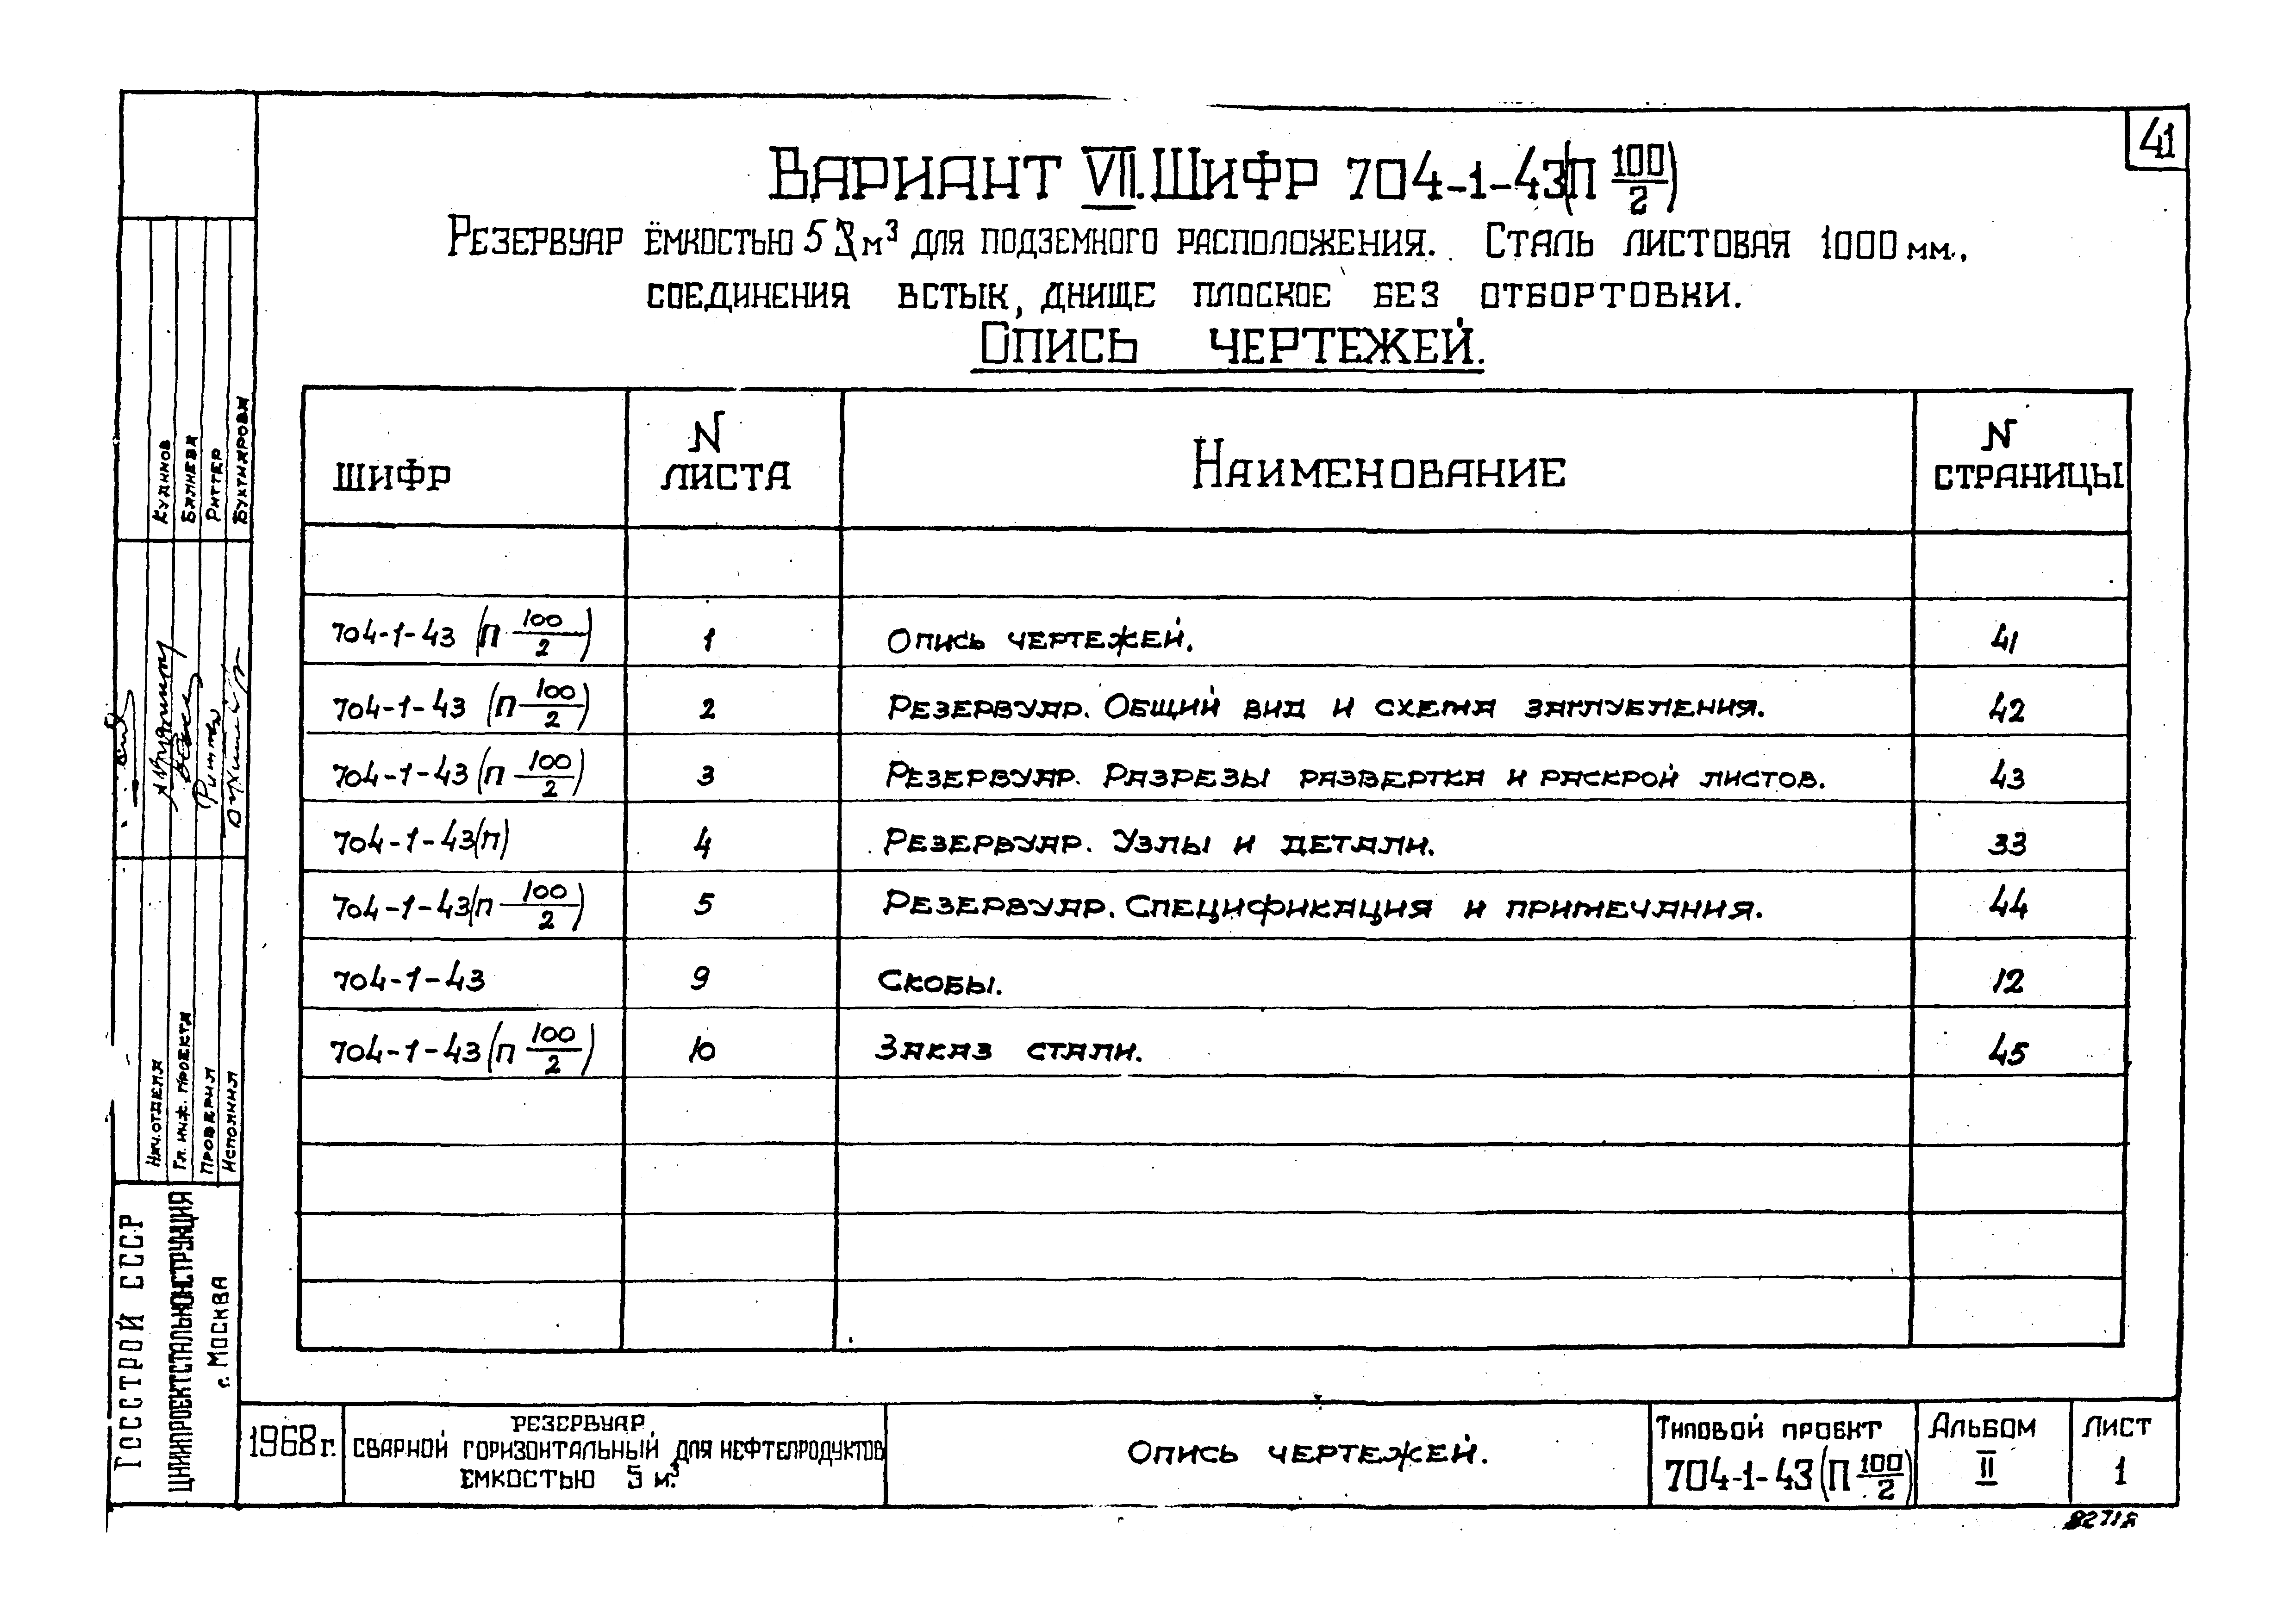 41
Вариант VII. Шифр 704-1-43(П 100/2)
Резервуар ёмкостью 5 м³ для подземного расположения. Сталь листовая 1000 мм.,
соединения встык, днище плоское без отбортовки.
Опись чертежей.
Шифр | N листа | Наименование | N страницы
704-1-43 (П 100/2) | 1 | Опись чертежей. | 41
704-1-43 (П 100/2) | 2 | Резервуар. Общий вид и схема заглубления. | 42
704-1-43 (П 100/2) | 3 | Резервуар. Разрезы развертка и раскрой листов. | 43
704-1-43(П) | 4 | Резервуар. Узлы и детали. | 33
704-1-43(П 100/2) | 5 | Резервуар. Спецификация и примечания. | 44
704-1-43 | 9 | Скобы. | 12
704-1-43(П 100/2) | 10 | Заказ стали. | 45
Госстрой СССР
ЦНИИПРОЕКТСТАЛЬКОНСТРУКЦИЯ
г. Москва
Нач. отдела Кудинов
Гл. инж. проекта
Проверил Риттер
Исполнил
1968 г.
Резервуар
сварной горизонтальный для нефтепродуктов
емкостью 5 м³.
Опись чертежей.
Типовой проект
704-1-43(П 100/2)
Альбом
II
Лист
1